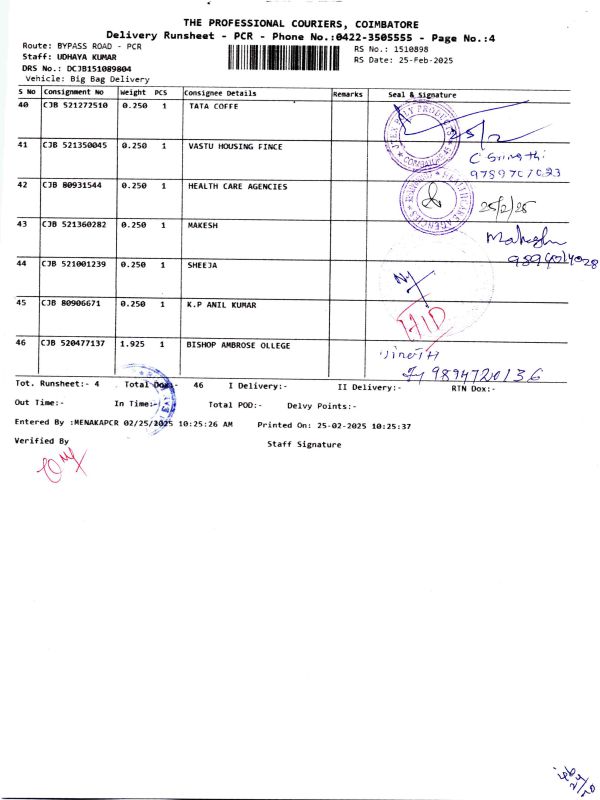 THE PROFESSIONAL COURIERS, COIMBATORE
Delivery Runsheet - PCR - Phone No.:0422-3505555 - Page No.:4
Route: BYPASS ROAD - PCR
RS No.: 1510898
Staff: UDHAYA KUMAR
RS Date: 25-Feb-2025
DRS No.: DCJB151089804
Vehicle: Big Bag Delivery
S No Consignment No Weight PCS Consignee Details Remarks Seal & Signature
40 CJB 521272510 0.250 1 TATA COFFE
25/2
41 CJB 521350045 0.250 1 VASTU HOUSING FINCE
9789707023
42 CJB 80931544 0.250 1 HEALTH CARE AGENCIES
25/2/25
43 CJB 521360282 0.250 1 MAKESH
44 CJB 521001239 0.250 1 SHEEJA
45 CJB 80906671 0.250 1 K.P ANIL KUMAR
46 CJB 520477137 1.925 1 BISHOP AMBROSE OLLEGE
9894720136
Tot. Runsheet:- 4 Total Dox:- 46 I Delivery:- II Delivery:- RTN Dox:-
Out Time:- In Time:- Total POD:- Delvy Points:-
Entered By :MENAKAPCR 02/25/2025 10:25:26 AM Printed On: 25-02-2025 10:25:37
Verified By Staff Signature